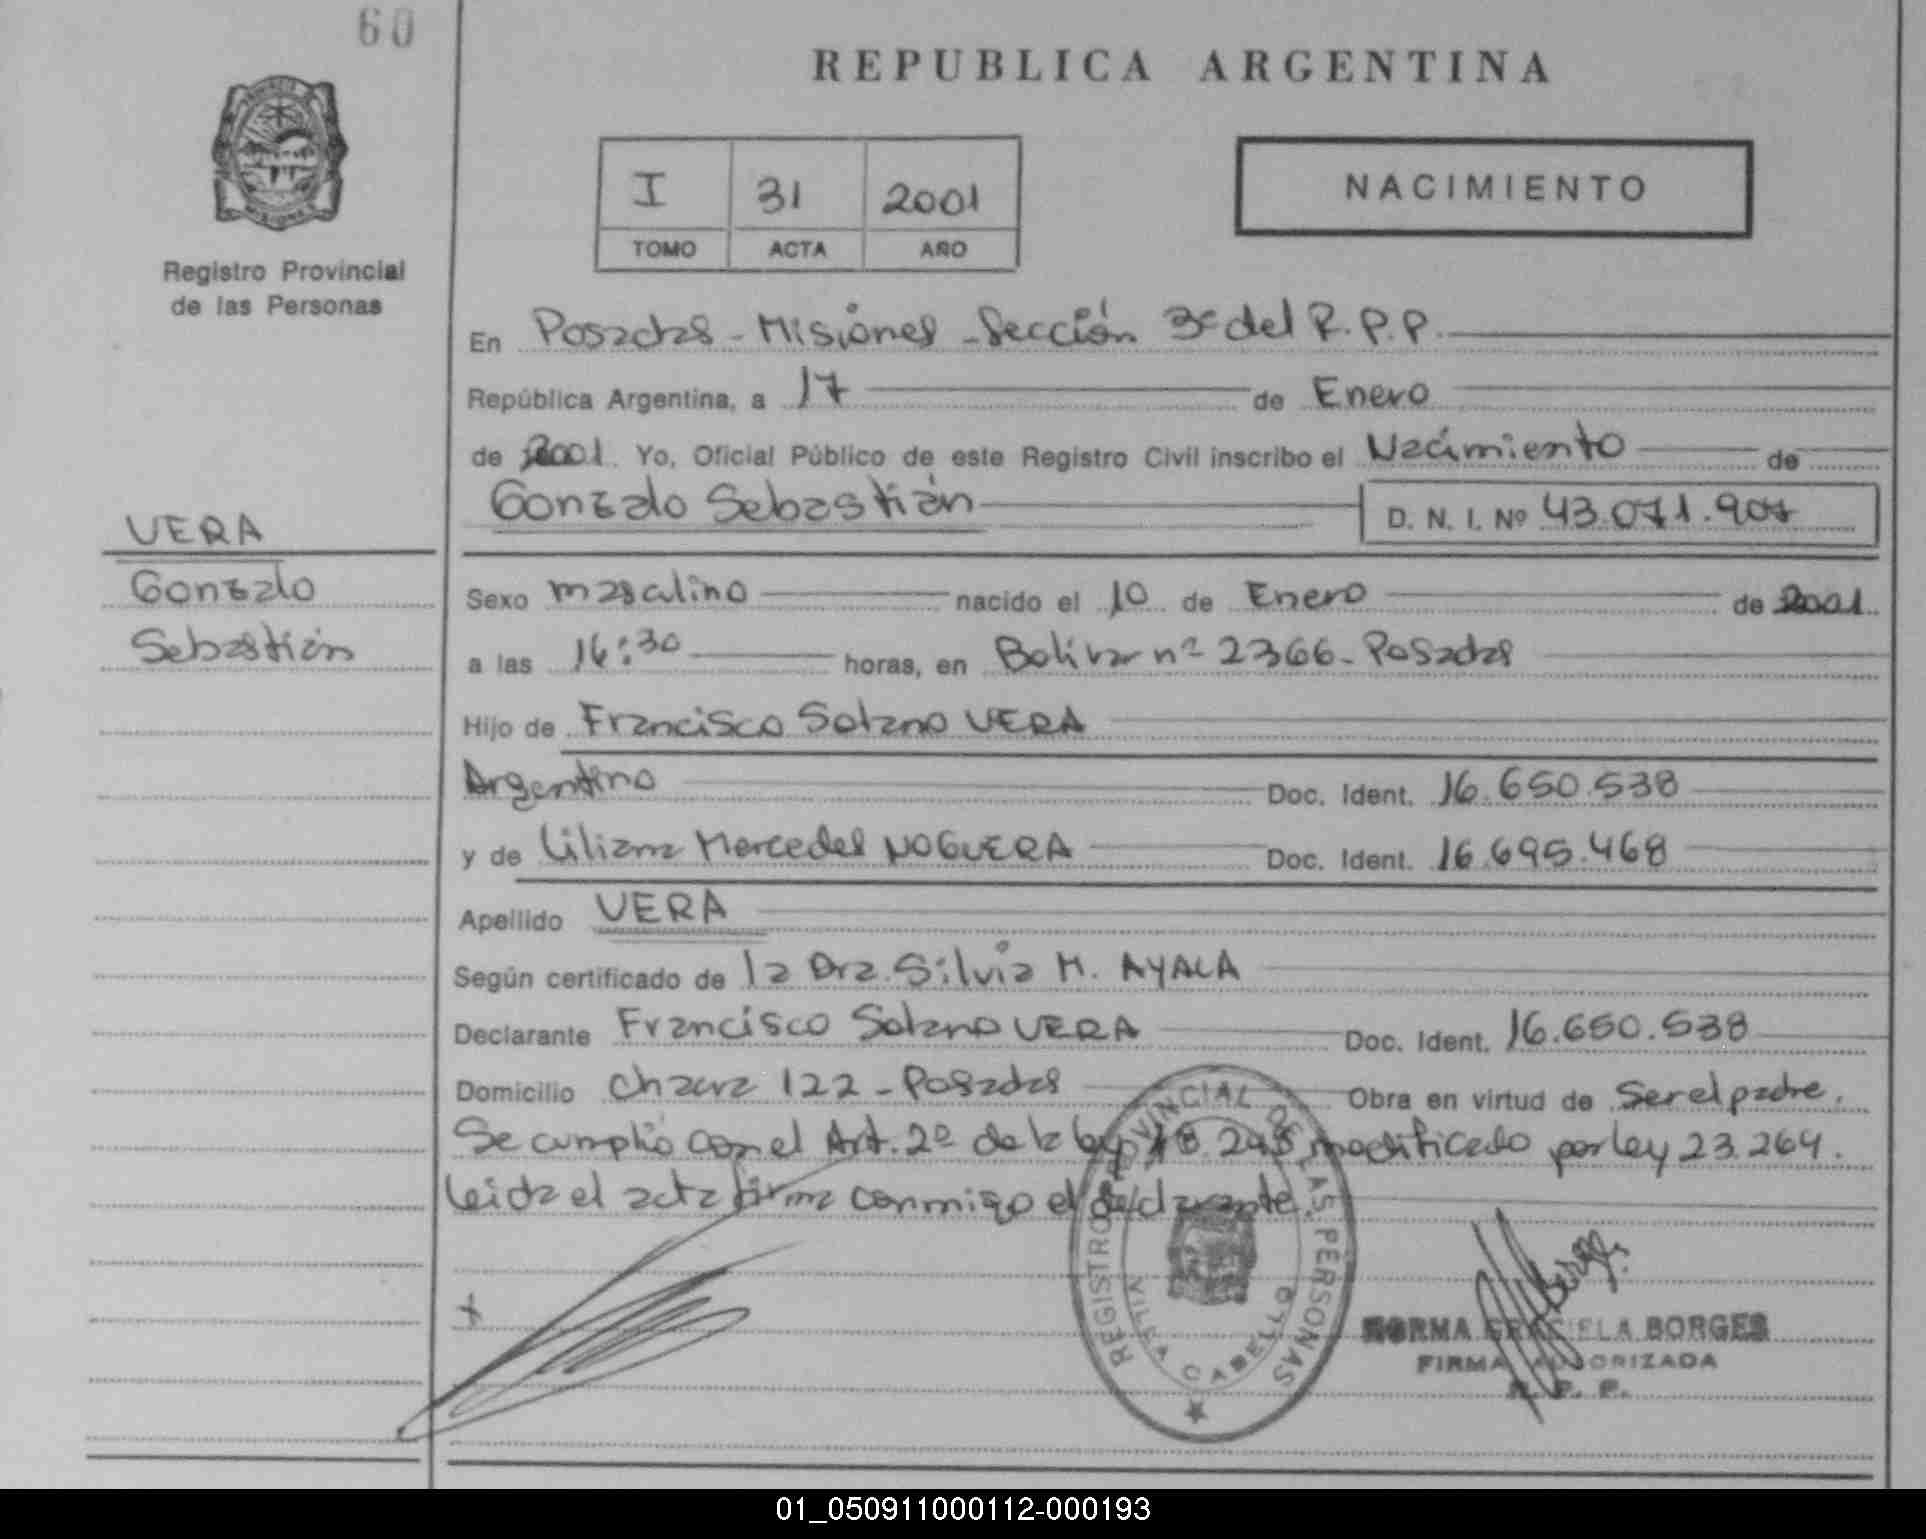 60
REPUBLICA ARGENTINA
I 31 2001
TOMO ACTA AÑO
NACIMIENTO
MISIONES
Registro Provincial
de las Personas
En Posadas - Misiones - Sección 3ª del R.P.P.
República Argentina, a 17 de Enero
de 2001. Yo, Oficial Público de este Registro Civil inscribo el Nacimiento de
Gonzalo Sebastián D. N. I. Nº 43.071.907
VERA
Gonzalo
Sebastián
Sexo masculino nacido el 10 de Enero de 2001.
a las 16:30 horas, en Bolivar nº 2366 - Posadas
Hijo de Francisco Solano VERA
Argentino Doc. Ident. 16.650.538
y de Liliana Mercedes NOGUERA Doc. Ident. 16.695.468
Apellido VERA
Según certificado de la Dra. Silvia M. AYALA
Declarante Francisco Solano VERA Doc. Ident. 16.650.538
Domicilio Chacra 122 - Posadas Obra en virtud de Ser el padre.
Se cumplió con el Art. 2º de la ley 18.248 modificado por ley 23.264.
Leida el acta firma conmigo el declarante.
REGISTRO PROVINCIAL DE LAS PERSONAS
VILLA CABELLO
NORMA GRACIELA BORGES
FIRMA AUTORIZADA
R. P. P.
01_050911000112-000193